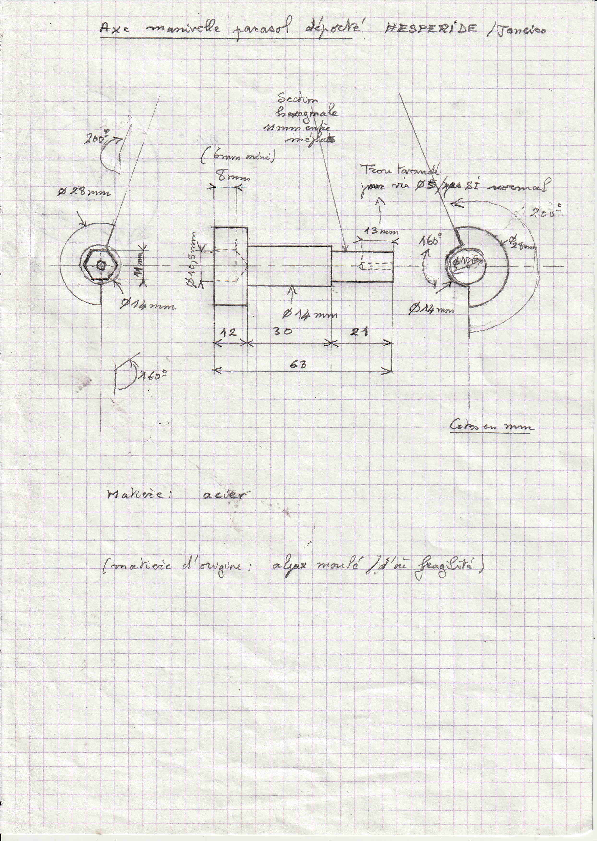 Axe manivelle parasol déporté HESPERIDE /Janeiro
Section
hexagonale
11mm entre
méplats
200°
(6mm mini)
8mm
Trou taraudé
pour vis Ø5/pas SI normal
Ø28mm
200°
13mm
160°
Ø28mm
11mm
Ø10,5mm
Ø14mm
Ø14mm
Ø14mm
12
30
21
63
160°
Cotes en mm
Matière: acier
(matière d'origine: moulé /d'où fragilité)